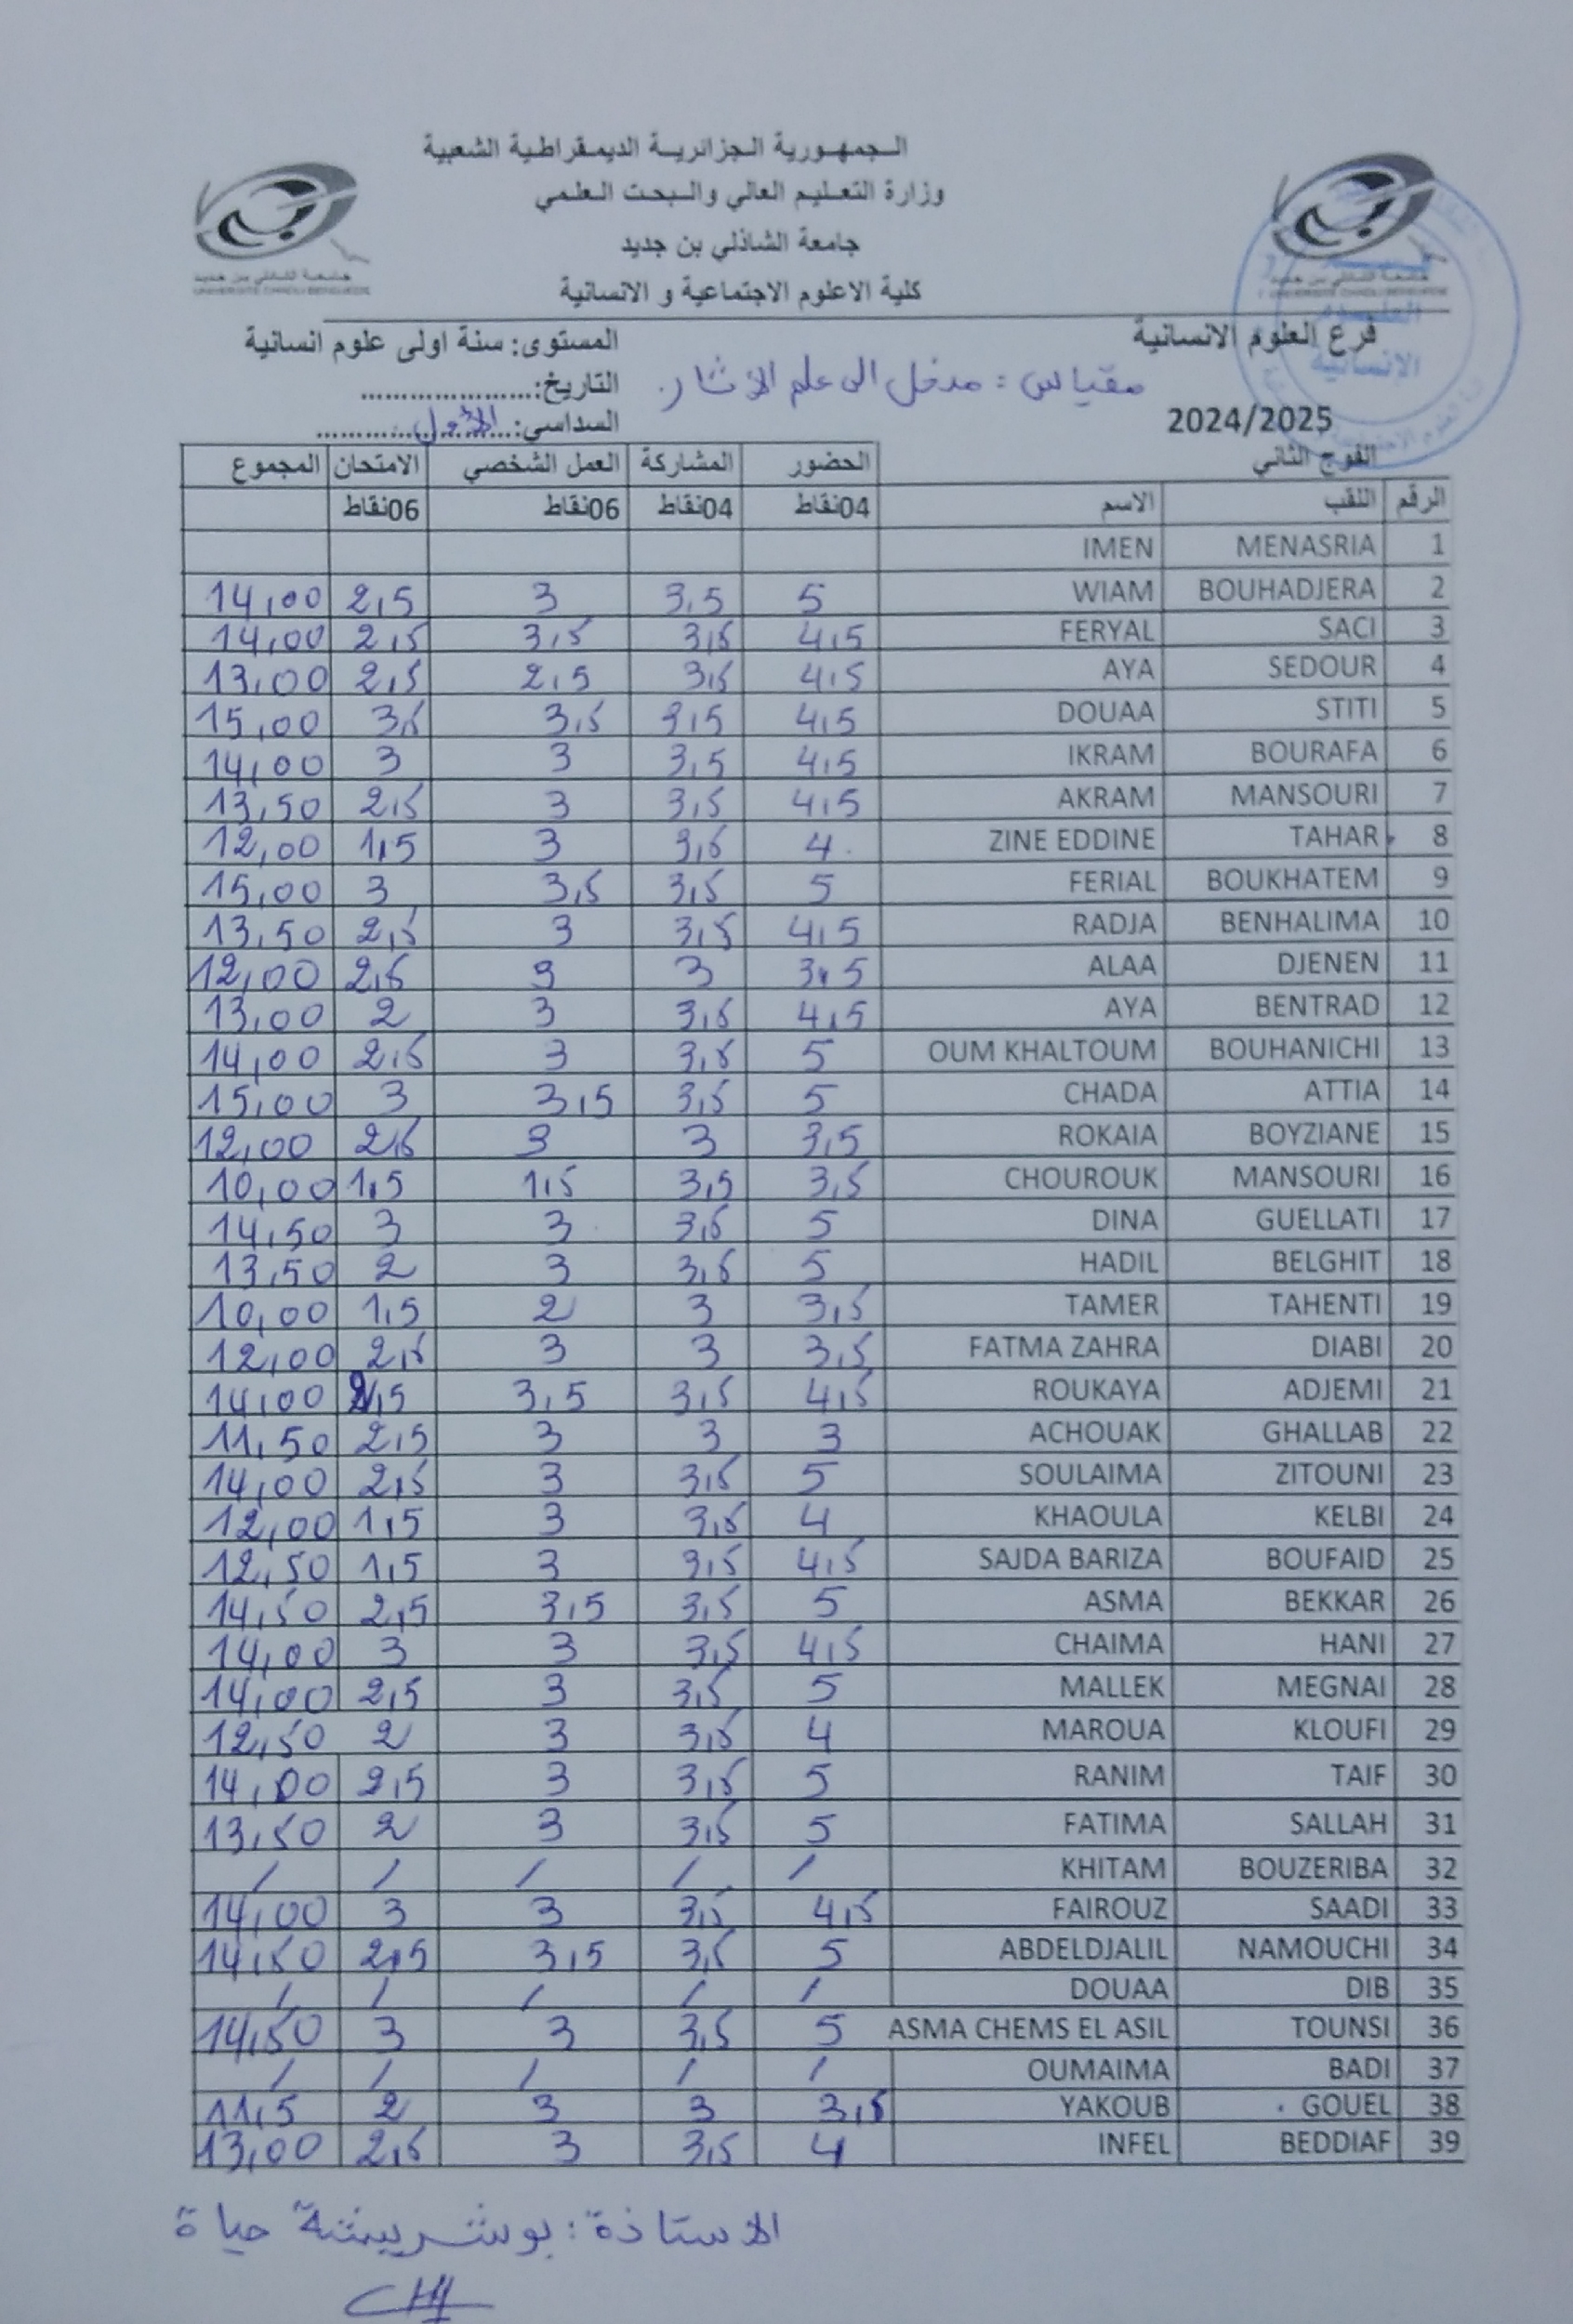 الـجمهـورية الـجزائريـة الديمـقراطـية الشعبية
وزارة التعـليم العالي والـبحـث العـلمي
جامعة الشاذلي بن جديد
كلية الاعلوم الاجتماعية و الانسانية
جامعة الشاذلي بن جديد
UNIVERSITE CHADLI BENDJEDID
فرع العلوم الانسانية المستوى: سنة اولى علوم انسانية
مقياس : مدخل الى علم الآثار. التاريخ:......................
2024/2025 السداسي: الأول
الفوج الثاني الحضور المشاركة العمل الشخصي الامتحان المجموع
الرقم اللقب الاسم 04نقاط 04نقاط 06نقاط 06نقاط
1 MENASRIA IMEN
2 BOUHADJERA WIAM 5 3,5 3 2,5 14,00
3 SACI FERYAL 4,5 3,5 3,5 2,5 14,00
4 SEDOUR AYA 4,5 3,5 2,5 2,5 13,00
5 STITI DOUAA 4,5 3,5 3,5 3,5 15,00
6 BOURAFA IKRAM 4,5 3,5 3 3 14,00
7 MANSOURI AKRAM 4,5 3,5 3 2,5 13,50
8 TAHAR ZINE EDDINE 4 3,5 3 1,5 12,00
9 BOUKHATEM FERIAL 5 3,5 3,5 3 15,00
10 BENHALIMA RADJA 4,5 3,5 3 2,5 13,50
11 DJENEN ALAA 3,5 3 3 2,5 12,00
12 BENTRAD AYA 4,5 3,5 3 2 13,00
13 BOUHANICHI OUM KHALTOUM 5 3,5 3 2,5 14,00
14 ATTIA CHADA 5 3,5 3,5 3 15,00
15 BOYZIANE ROKAIA 3,5 3 3 2,5 12,00
16 MANSOURI CHOUROUK 3,5 3,5 1,5 1,5 10,00
17 GUELLATI DINA 5 3,5 3 3 14,50
18 BELGHIT HADIL 5 3,5 3 2 13,50
19 TAHENTI TAMER 3,5 3 2 1,5 10,00
20 DIABI FATMA ZAHRA 3,5 3 3 2,5 12,00
21 ADJEMI ROUKAYA 4,5 3,5 3,5 2,5 14,00
22 GHALLAB ACHOUAK 3 3 3 2,5 11,50
23 ZITOUNI SOULAIMA 5 3,5 3 2,5 14,00
24 KELBI KHAOULA 4 3,5 3 1,5 12,00
25 BOUFAID SAJDA BARIZA 4,5 3,5 3 1,5 12,50
26 BEKKAR ASMA 5 3,5 3,5 2,5 14,50
27 HANI CHAIMA 4,5 3,5 3 3 14,00
28 MEGNAI MALLEK 5 3,5 3 2,5 14,00
29 KLOUFI MAROUA 4 3,5 3 2 12,50
30 TAIF RANIM 5 3,5 3 2,5 14,00
31 SALLAH FATIMA 5 3,5 3 2 13,50
32 BOUZERIBA KHITAM / / / / /
33 SAADI FAIROUZ 4,5 3,5 3 3 14,00
34 NAMOUCHI ABDELDJALIL 5 3,5 3,5 2,5 14,50
35 DIB DOUAA / / / / /
36 TOUNSI ASMA CHEMS EL ASIL 5 3,5 3 3 14,50
37 BADI OUMAIMA / / / / /
38 GOUEL YAKOUB 3,5 3 3 2 11,5
39 BEDDIAF INFEL 4 3,5 3 2,5 13,00
الاستاذة : بوشريشة حياة